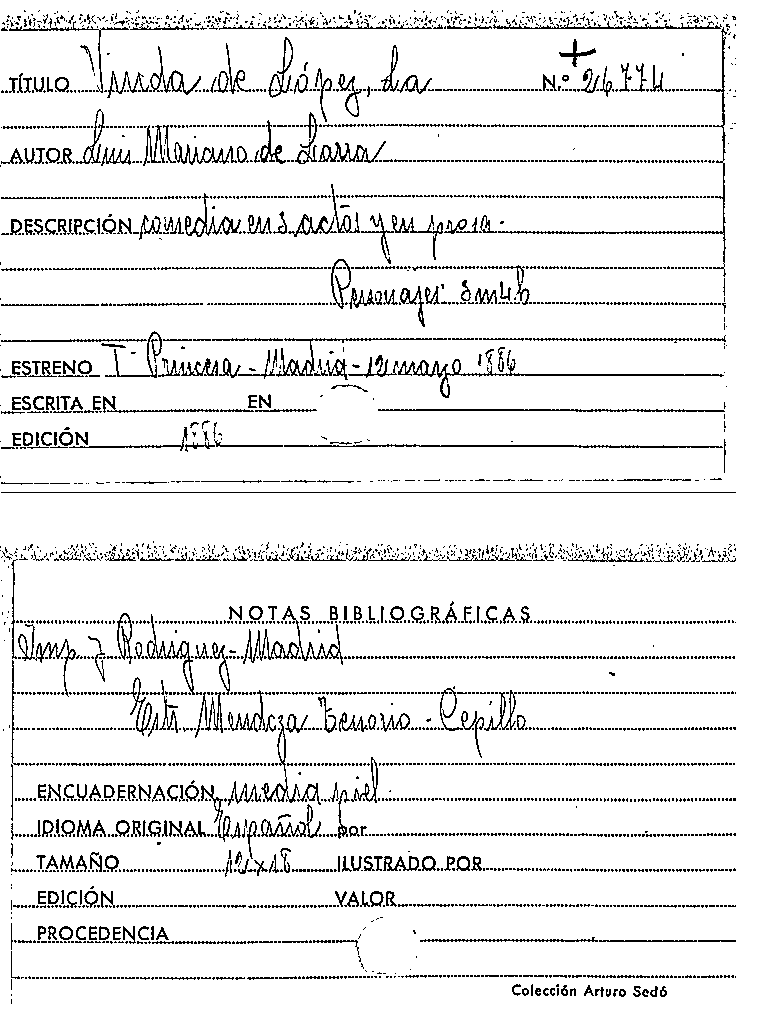 +
TÍTULO Viuda de López, La N.º 26774
AUTOR Luis Mariano de Larra
DESCRIPCIÓN comedia en 3 actos y en prosa.
Personajes: 3m4h
ESTRENO Tº Princesa - Madrid - 12 mayo 1886
ESCRITA EN EN
EDICIÓN 1886
NOTAS BIBLIOGRÁFICAS
Imp J Rodriguez - Madrid
Estr. Mendoza Tenorio - Cepillo
ENCUADERNACIÓN media piel
IDIOMA ORIGINAL Español por
TAMAÑO 12x18 ILUSTRADO POR
EDICIÓN VALOR
PROCEDENCIA
Colección Arturo Sedó